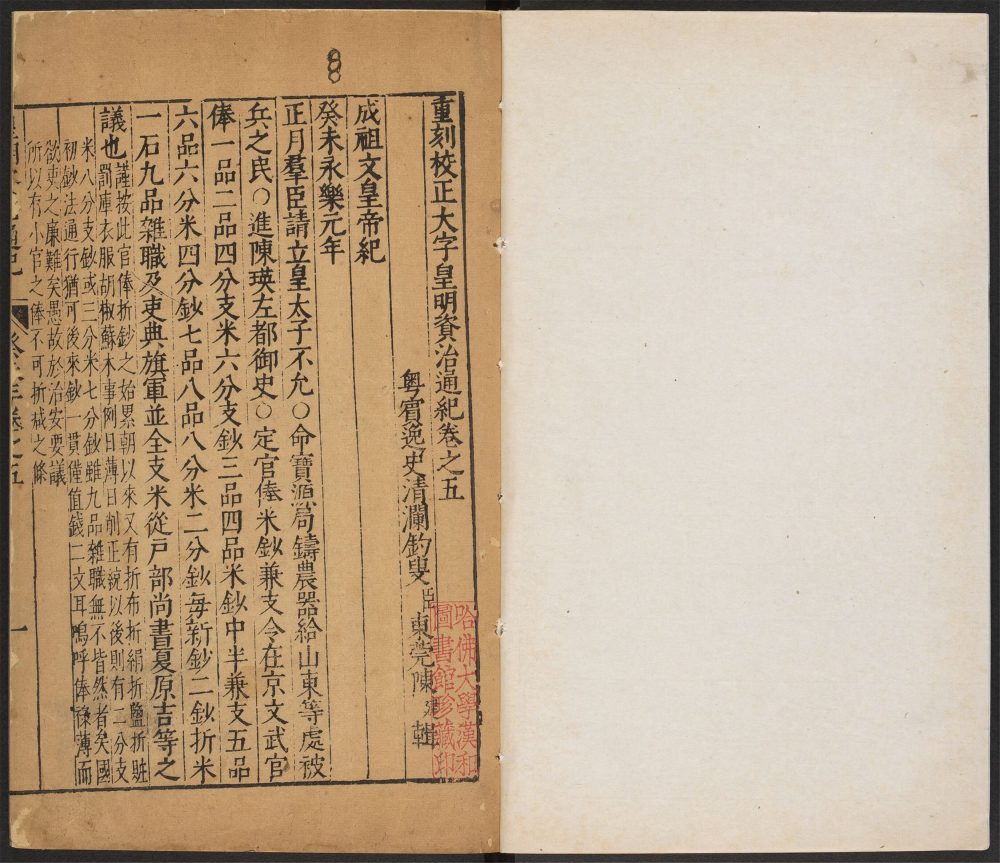 8
重刻校正大字皇明資治通紀卷之五
粤賓逸史清瀾釣叟臣東莞陳建輯
哈佛大學漢和
圖書館珍藏印
成祖文皇帝紀
癸未永樂元年
正月羣臣請立皇太子不允○命寶源局鑄農器給山東等處被
兵之民○進陳瑛左都御史○定官俸米鈔兼支今在京文武官
俸一品二品四分支米六分支鈔三品四品米鈔中半兼支五品
六品六分米四分鈔七品八品八分米二分鈔每新鈔二鈔折米
一石九品雜職及吏典旗軍並全支米從戶部尚書夏原吉等之
議也謹按此官俸折鈔之始累朝以來又有折布折絹折鹽折賍
罰庫衣服胡椒蘇木事例日薄日削正統以後則有二分支
米八分支鈔或三分米七分鈔雖九品雜職無不皆然者矣國
初鈔法通行猶可後來鈔一貫僅值錢二文耳嗚呼俸祿薄而
欲吏之廉難矣愚故於治安要議
所以有小官之俸不可折減之條
卷之五
一